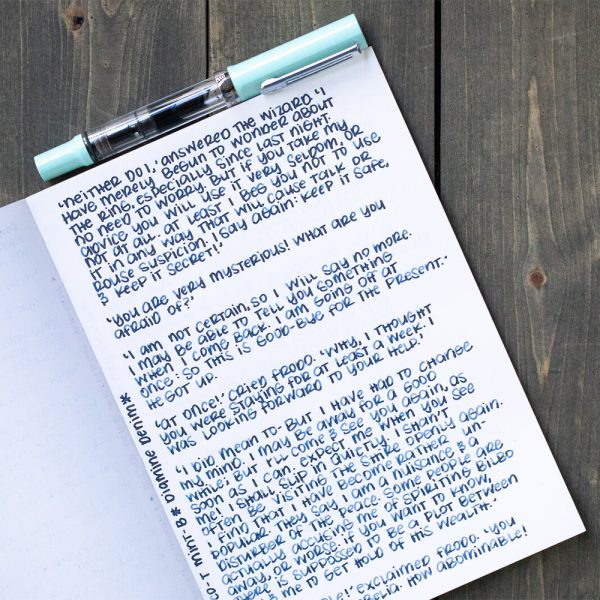 'Neither do I,' answered the wizard. 'I
have merely begun to wonder about
the ring, especially since last night.
No need to worry. But if you take my
advice you will use it very seldom, or
not at all. At least I beg you not to use
it in any way that will cause talk or
rouse suspicion. I say again: keep it safe,
& keep it secret!'
'You are very mysterious! What are you
afraid of?'
'I am not certain, so I will say no more.
I may be able to tell you something
when I come back. I am going off at
once: so this is good-bye for the present.'
He got up.
'At once!' cried Frodo. 'Why, I thought
you were staying for at least a week. I
was looking forward to your help.'
'I did mean to- but I have had to change
my mind. I may be away for a good
while; but I'll come & see you again, as
soon as I can. Expect me when you see
me! I shall slip in quietly. I shan't
often be visiting the Shire openly again.
I find that I have become rather un-
popular. They say I am a nuisance & a
disturber of the peace. Some people are
actually accusing me of spiriting Bilbo
away, or worse. If you want to know,
there is supposed to be a plot between
& me to get hold of his wealth.'
exclaimed Frodo. 'You
How abominable!
Mint-B * Diamine Denim *